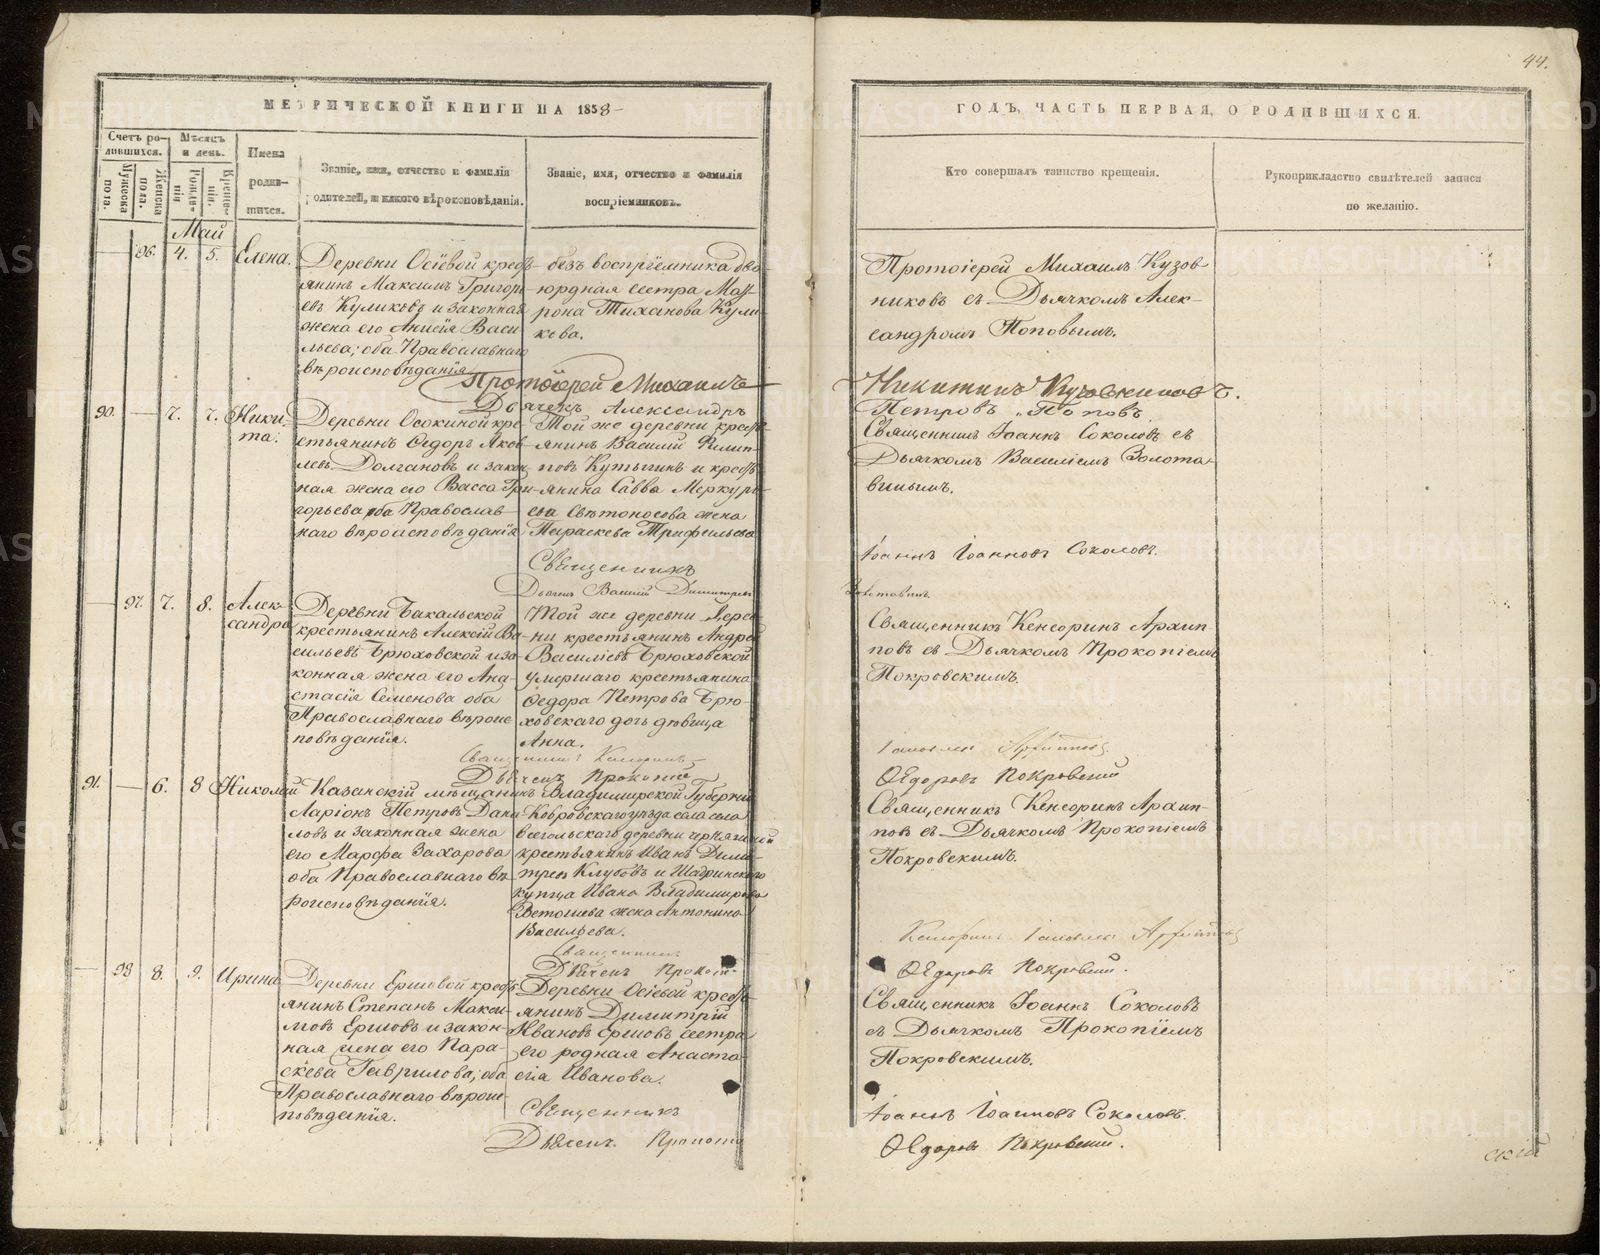 44.
МЕТРИЧЕСКОЙ КНИГИ НА 1858
ГОДЪ, ЧАСТЬ ПЕРВАЯ, О РОДИВШИХСЯ.
Счетъ родившихся.
Мужеска пола.
Женска пола.
Мѣсяцъ и день.
Рожденія.
Крещенія.
Имена родившихся.
Званіе, имя, отчество и фамилія
родителей, и какого вѣроисповѣданія.
Званіе, имя, отчество и фамилія
воспріемниковъ.
Кто совершалъ таинство крещенія.
Рукоприкладство свидѣтелей записи
по желанію.
Май
96. 4. 5. Елена.
Деревни Осіевой кресть-
янинъ Максимъ Григорь-
евъ Куликовъ и законная
жена его Анисія Васи-
льева; оба Православнаго
вѣроисповѣданія
безъ воспріемника дво-
юродная сестра Мат-
рона Тиханова Кули-
кова.
Протоіерей Михаилъ Кузов-
никовъ съ Дьячкомъ Алек-
сандромъ Поповымъ.
Протоіерей Михаилъ
Никитинъ Кузовниковъ.
Дьячекъ Александръ
Петровъ Поповъ
90. 7. 7. Ники-
та.
Деревни Осокиной кре-
стьянинъ Ѳедоръ Яков-
левъ Долгановъ и закон-
ная жена его Васса Гри-
горьева оба Православ-
наго вѣроисповѣданія
Той же деревни кресть-
янинъ Василій Филип-
повъ Кутыгинъ и кресть-
янина Савва Меркурь-
ева Свѣтоносова жена
Параскева Трифильева
Священникъ Іоаннъ Соколовъ съ
Дьячкомъ Василіемъ Золота-
винымъ.
Священникъ
Іоаннъ Іоанновъ Соколовъ.
97. 7. 8. Алек-
сандра
Деревни Бакальской
крестьянинъ Алексій Ва-
сильевъ Брюховской и за-
конная жена его Ана-
стасія Семенова оба
Православнаго вѣроис-
повѣданія.
Той же деревни
крестьянинъ Андрей
Василіевъ Брюховской
умершаго крестьянина
Ѳедора Петрова Брю-
ховскаго дочь дѣвица
Анна.
Священникъ Кенсоринъ Архип-
повъ съ Дьячкомъ Прокопіемъ
Покровскимъ.
Дьячекъ Прокопій
Ѳедоровъ Покровскій
91. 6. 8 Николай
Казанскій мѣщанинъ
Ларіонъ Петровъ Дани-
ловъ и законная жена
его Марѳа Захарова
оба Православнаго вѣ-
роисповѣданія.
Владимирской Губерніи
Ковровскаго уѣзда села
крестьянинъ Иванъ Дими-
тріевъ Клубовъ и Шадринскаго
купца Ивана Владимирова
Ветошева жена Антонина
Васильева.
Священникъ Кенсоринъ Архип-
повъ съ Дьячкомъ Прокопіемъ
Покровскимъ.
Священникъ
Дьячекъ Прокопій
Ѳедоровъ Покровскій.
98 8. 9. Ирина
Деревни Ершовой кресть-
янинъ Степанъ Макси-
мовъ Ершовъ и закон-
ная жена его Пара-
скева Гаврилова, оба
Православнаго вѣроис-
повѣданія.
Деревни Осіевой кресть-
янинъ Димитрій
Ивановъ Ершовъ сестра
его родная Анаста-
сія Иванова.
Священникъ Іоаннъ Соколовъ
съ Дьячкомъ Прокопіемъ
Покровскимъ.
Священникъ
Іоаннъ Іоанновъ Соколовъ.
Дьячекъ Прокопій
Ѳедоровъ Покровскій.
METRIKI.GASO-URAL.RU